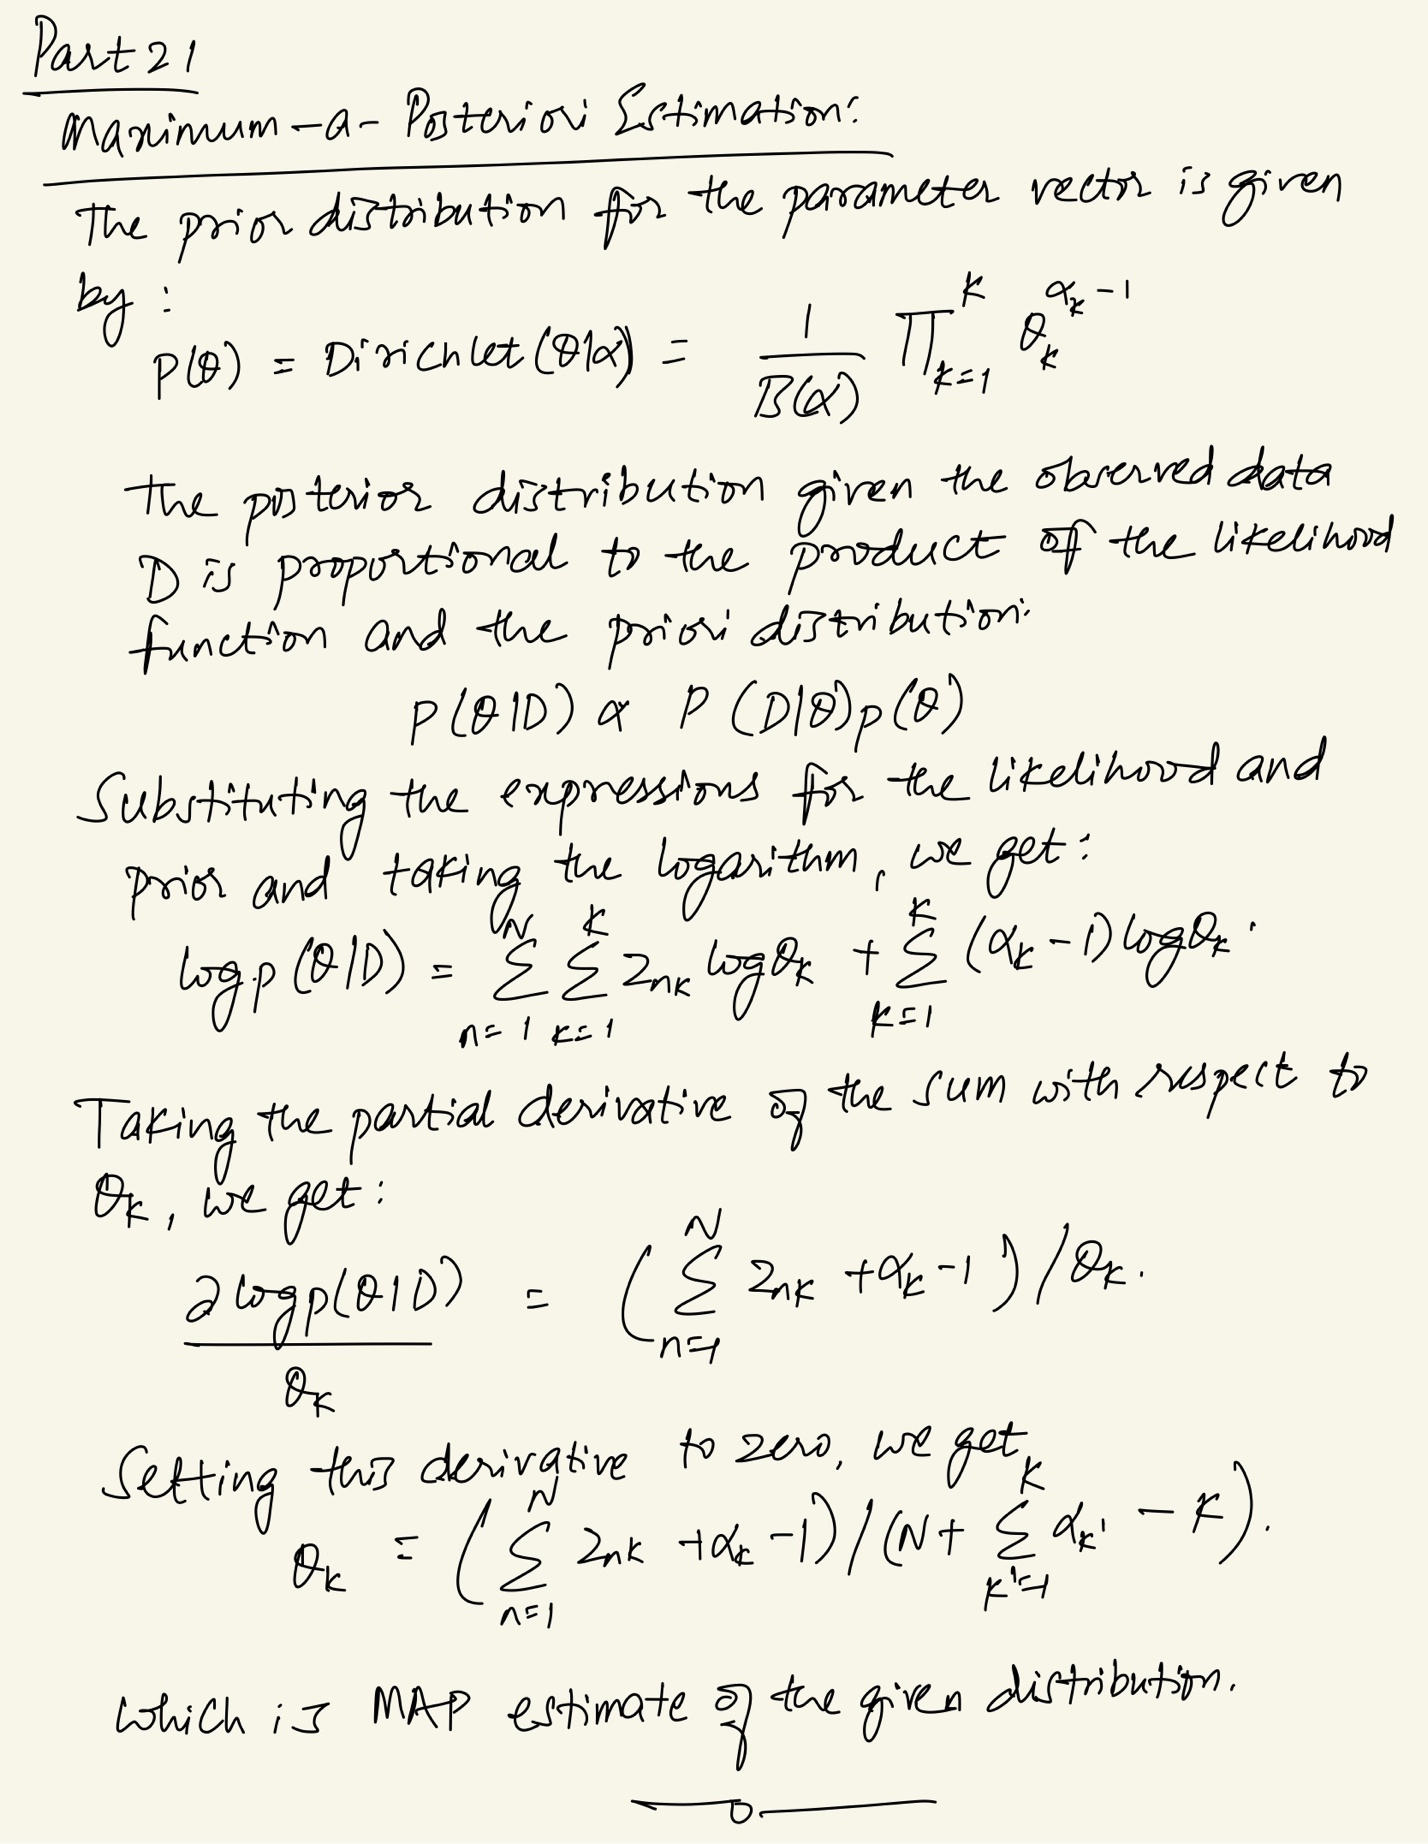 Part 21
Maximum-a-Posteriori Estimation:
The prior distribution for the parameter vector is given
by:
P(θ) = Dirichlet(θ|α) = 1/B(α) ∏_{k=1}^{K} θ_k^{α_k-1}
The posterior distribution given the observed data
D is proportional to the product of the likelihood
function and the priori distribution:
P(θ|D) ∝ P(D|θ)p(θ)
Substituting the expressions for the likelihood and
prior and taking the logarithm, we get:
log p(θ|D) = ∑_{n=1}^{N} ∑_{k=1}^{K} z_{nk} log θ_k + ∑_{k=1}^{K} (α_k-1) log θ_k.
Taking the partial derivative of the sum with respect to
θ_k, we get:
∂ log p(θ|D)/θ_k = (∑_{n=1}^{N} z_{nk} + α_k - 1)/θ_k.
Setting this derivative to zero, we get,
θ_k = (∑_{n=1}^{N} z_{nk} + α_k - 1)/(N + ∑_{k'=1}^{K} α_{k'} - K).
which is MAP estimate of the given distribution.